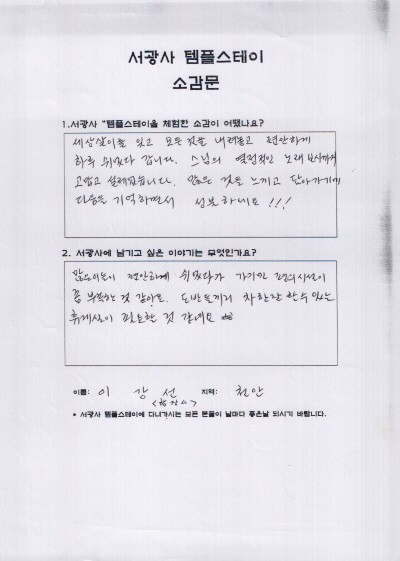 서광사 템플스테이
소감문
1.서광사 "템플스테이을 체험한 소감이 어땠나요?
세상살이를 잊고 모든 것을 내려놓고 편안하게
하루 쉬었다 갑니다. 스님의 열정적인 노래 보시까지
고맙고 설레였습니다. 많은 것을 느끼고 돌아가기에
다음을 기약하면서 성불하세요 !!!
2. 서광사에 남기고 싶은 이야기는 무엇인가요?
많은이들이 편안하게 쉬었다가 가기엔 편의시설이
좀 부족한 것 같아요. 도반들끼리 차한잔 할 수 있는
휴게실이 필요한 것 같네요
이름: 이 강 선 지역: 천안
* 서광사 템플스테이에 다녀가시는 모든 분들이 날마다 좋은날 되시기 바랍니다.